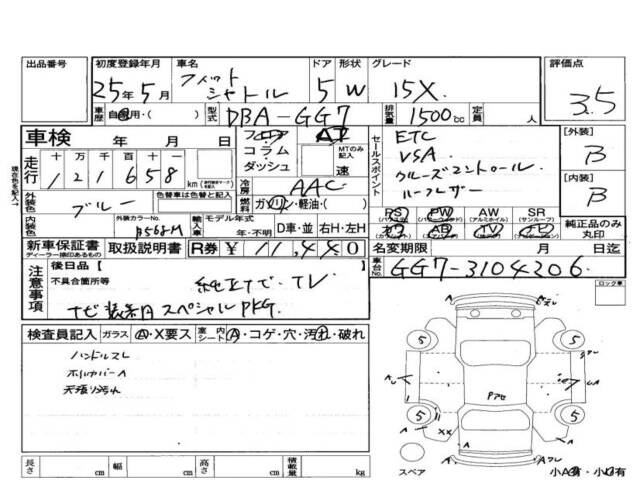 出品番号 初度登録年月 車名 ドア 形状 グレード 評価点
25年5月 フィット シャトル 5 W 15X 3.5
車歴 自家用・( ) 型式 DBA-GG7 排気量 1500cc 定員 人
車検 年 月 日 フロア AT
走行 十万千百十一
121658 km
コラム
ダッシュ
MTのみ記入
速
セールスポイント
ETC
VSA
クルーズコントロール
ルーフレザー
[外装]
B
[内装]
B
外装色 ブルー 色替車は色替と記入 冷房 AAC
燃料 ガソリン・軽油・( )
内装色 外装カラーNo. B568M 輸入車 モデル年式 年・不明 D車・並 右H・左H
PS PW AW SR
(パワーウィンドウ) (アルミホイル) (サンルーフ)
純正品のみ丸印
新車保証書 取扱説明書 R券 ¥11,440 名変期限 月 日迄
ディーラー捺印あるもの
現在色を記入→
注意事項
後日品[ ]
不具合箇所等
純正ナビ・TV
ナビ装着用スペシャルPKG
車台No. GG7-3104206
ロック車
検査員記入 ガラス A・X要ス 室内シート A・コゲ・穴・汚れ・破れ
ハンドルスレ
ホイルカバーA
天張り汚れ
5 5
Pアセ
5 5
XX
スペア
長さ cm 幅 cm 高さ cm 積載量 kg
小A有・小 有